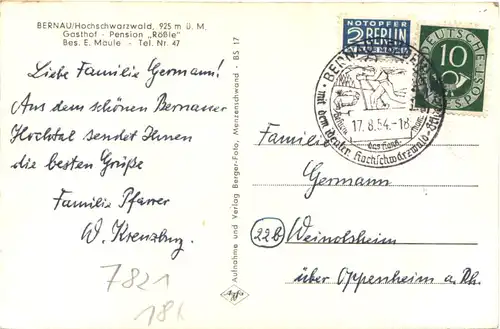 BERNAU/Hochschwarzwald, 925 m ü. M.
Gasthof - Pension „Rößle"
Bes. E. Maule - Tel. Nr. 47
Liebe Familie Germann!
Aus dem schönen Bernauer
Hochtal sendet Ihnen
die besten Grüße
Familie Pfarrer
W. Kreuzburg.
7821
18h
Aufnahme und Verlag Berger-Foto, Menzenschwand - BS 17
Agfa
NOTOPFER
2 BERLIN
STEUERMARKE
DEUTSCHE
10
BUNDESPOST
BERNAU
17.8.54.-18
das Hans
mit dem idealen Hochschwarzwald
Familie
Germann
22b Weinolsheim
über Oppenheim a. Rh.